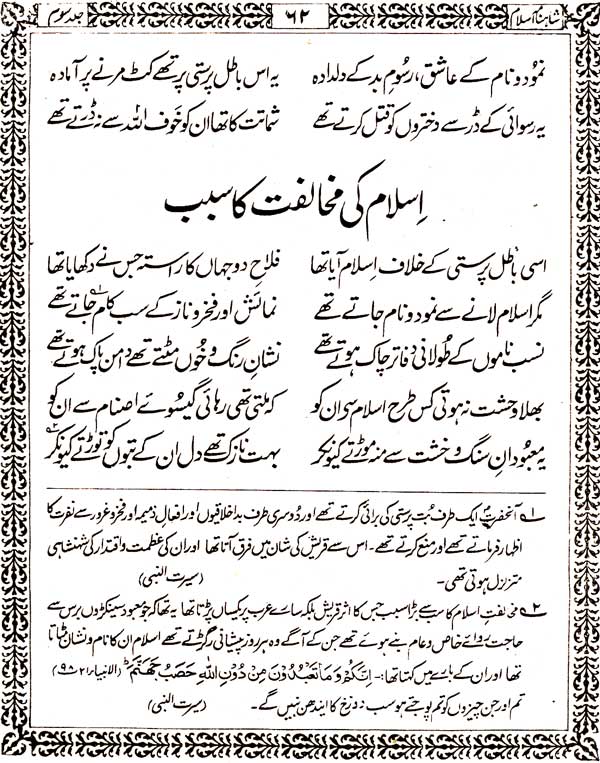 شاہنامہ اسلام ۶۲ جلد سوم
نمود و نام کے عاشق، رسومِ بد کے دلدادہ یہ اس باطل پرستی پر تھے کٹ مرنے پر آمادہ
یہ رسوائی کے ڈر سے دختروں کو قتل کرتے تھے شماتت کا تھا ان کو خوف اللہ سے نہ ڈرتے تھے
اِسلام کی مخالفت کا سبب
اسی باطل پرستی کے خلاف اِسلام آیا تھا فلاحِ دو جہاں کا راستہ جس نے دکھایا تھا
مگر اسلام لانے سے نمود و نام جاتے تھے نمائش اور فخر و ناز کے سب کام جاتے تھے ؎۱
نسب ناموں کے طُولانی دفاتر چاک ہوتے تھے نشانِ رنگ و خُوں مٹتے تھے دامن پاک ہوتے تھے
بھلا وحشت نہ ہوتی کس طرح اسلام سے ان کو کہ ملتی تھی رہائی گیسوئے اصنام سے ان کو
یہ معبودانِ سنگ و خشت سے منہ موڑتے کیونکر بہت نازک تھے دل ان کے بتوں کو توڑتے کیونکر ؎۲
؎۱ آنحضرتؐ ایک طرف بُت پرستی کی برائی کرتے تھے اور دُوسری طرف بداخلاقیوں اور افعالِ ذمیمہ اور فخر و غرور سے نفرت کا
اظہار فرماتے تھے اور منع کرتے تھے۔ اس سے قریش کی شان میں فرق آتا تھا اور ان کی عظمت و اقتدار کی شہنشاہی
متزلزل ہوتی تھی۔ (سیرت النبی)
؎۲ مخالفتِ اسلام کا سب سے بڑا سبب جس کا اثر قریش بلکہ سارے عرب پر یکساں پڑتا تھا یہ تھا کہ جو معبود سینکڑوں برس سے
حاجت روائے خاص و عام بنے ہوئے تھے جن کے آگے وہ ہر روز پیشانی رگڑتے تھے اسلام ان کا نام و نشان مٹاتا
تھا اور ان کے بارے میں کہتا تھا:۔ اِنَّکُمْ وَمَا تَعْبُدُوْنَ مِنْ دُوْنِ اللّٰہِ حَصَبُ جَھَنَّمَ ؕ (الانبیاء/۲۱-۹۸)
تم اور جن چیزوں کو تم پوجتے ہو سب دوزخ کا ایندھن بنیں گے۔ (سیرت النبی)